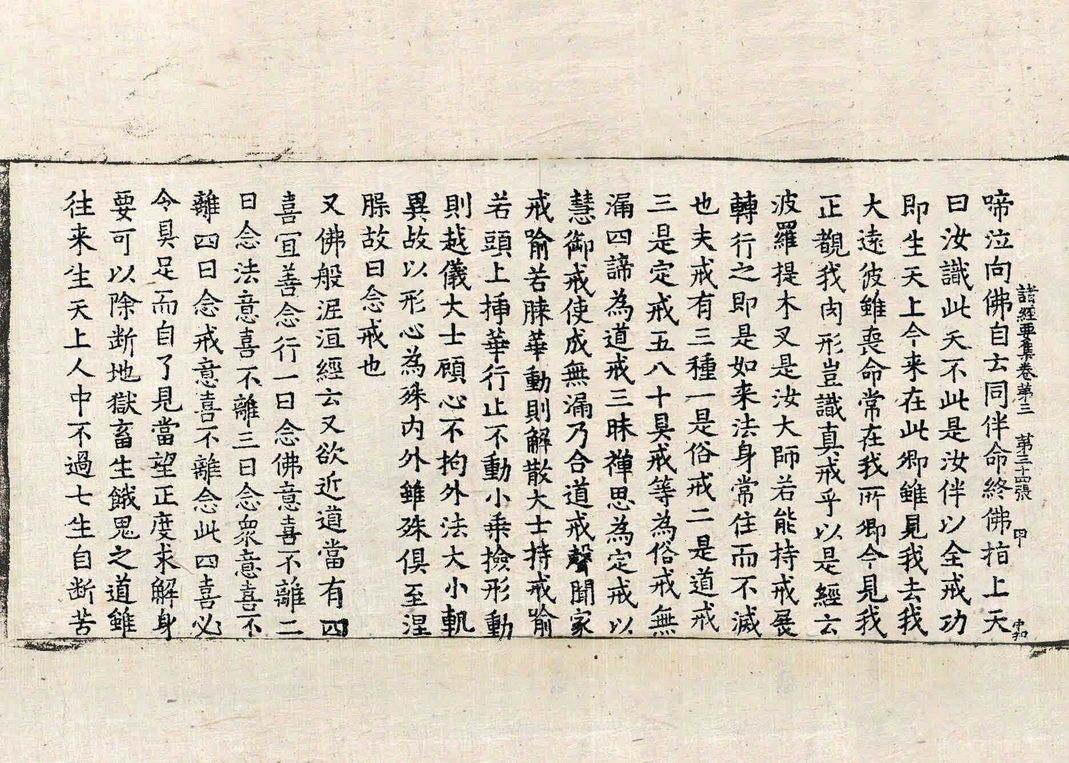 諸經要集卷第三 第三十四張 甲
啼泣向佛自云同伴命終佛指上天
曰汝識此天不此是汝伴以全戒功
即生天上今来在此卿雖見我去我
大遠彼雖喪命常在我所卿今見我
正覩我肉形豈識真戒乎以是經云
波羅提木叉是汝大師若能持戒展
轉行之即是如来法身常住而不滅
也夫戒有三種一是俗戒二是道戒
三是定戒五八十具戒等為俗戒無
漏四諦為道戒三昧禪思為定戒以
慧御戒使成無漏乃合道戒聲聞家
戒喻若膝華動則解散大士持戒喻
若頭上揷華行止不動小乗撿形動
則越儀大士顧心不拘外法大小軌
異故以形心為殊内外雖殊俱至涅
腺故曰念戒也
又佛般泥洹經云又欲近道當有四
喜冝善念行一曰念佛意喜不離二
曰念法意喜不離三曰念衆意喜不
離四曰念戒意喜不離念此四喜必
令具足而自了見當望正度求解身
要可以除断地獄畜生餓鬼之道雖
往来生天上人中不過七生自断苦